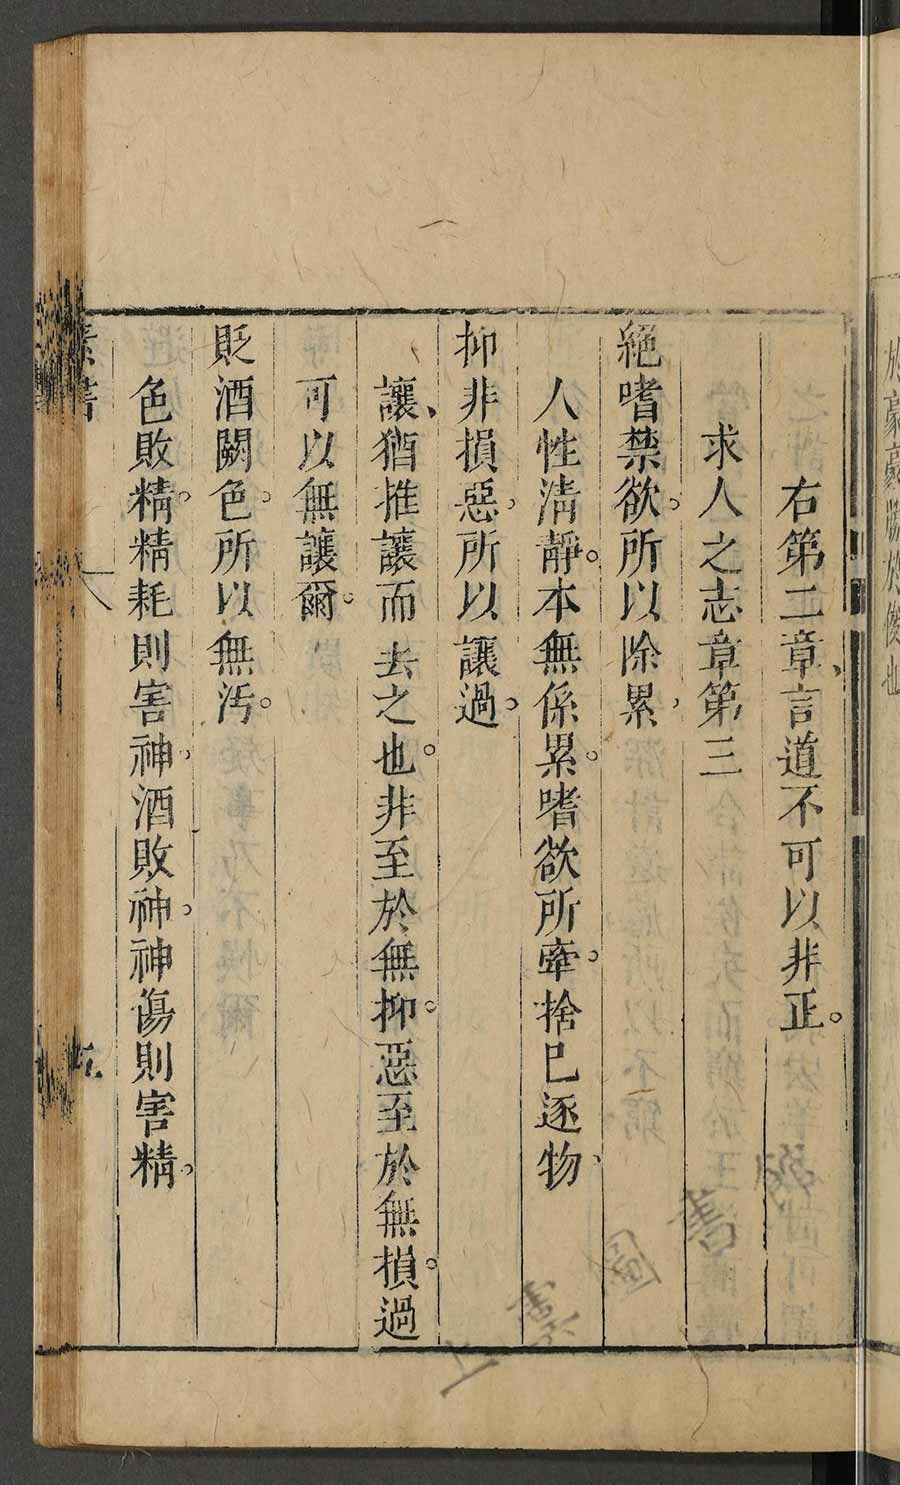 右第二章、言道不可以非正。
求人之志章第三
絕嗜禁欲。所以除累、
人性淸靜。本無係累。嗜欲所牽。捨己逐物、
抑非損惡。所以讓過。
讓、猶推讓而去之也。非至於無抑。惡至於無損。過
可以無讓爾。
貶酒闕色。所以無汚。
色敗精。精耗則害神。酒敗神。神傷則害精。
素書
八